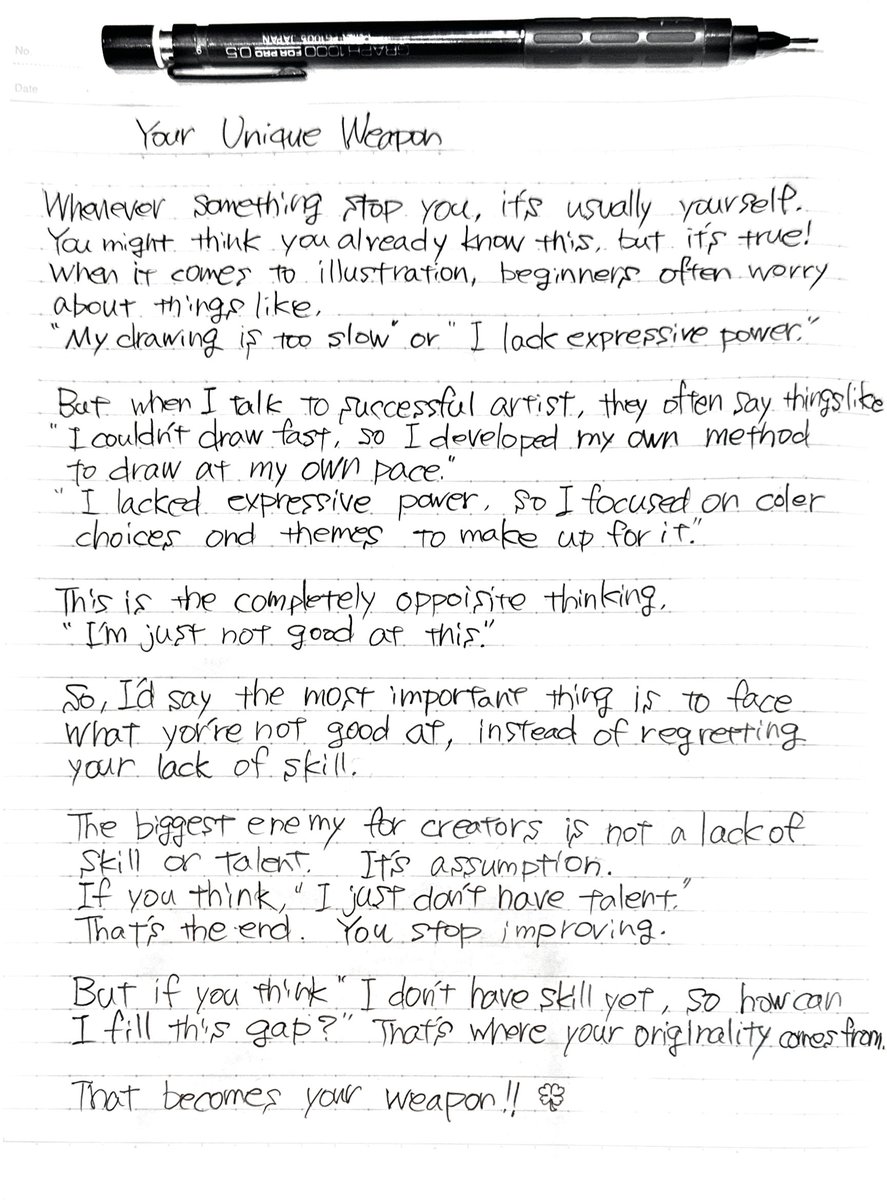 No.
Date
GRAPH 1000 FOR PRO 0.5
JAPAN
Your Unique Weapon
Whenever something stop you, it's usually yourself.
You might think you already know this, but it's true!
When it comes to illustration, beginners often worry
about things like,
"My drawing is too slow" or "I lack expressive power."
But when I talk to successful artist, they often say things like
"I couldn't draw fast, so I developed my own method
to draw at my own pace."
"I lacked expressive power, so I focused on coler
choices ond themes to make up for it."
This is the completely oppoisite thinking,
"I'm just not good at this."
So, I'd say the most important thing is to face
what yor're not good at, instead of regretting
your lack of skill.
The biggest enemy for creators is not a lack of
skill or talent. It's assumption.
If you think, "I just don't have talent."
That's the end. You stop improving.
But if you think "I don't have skill yet, so how can
I fill this gap?" That's where your originality comes from.
That becomes your weapon!!